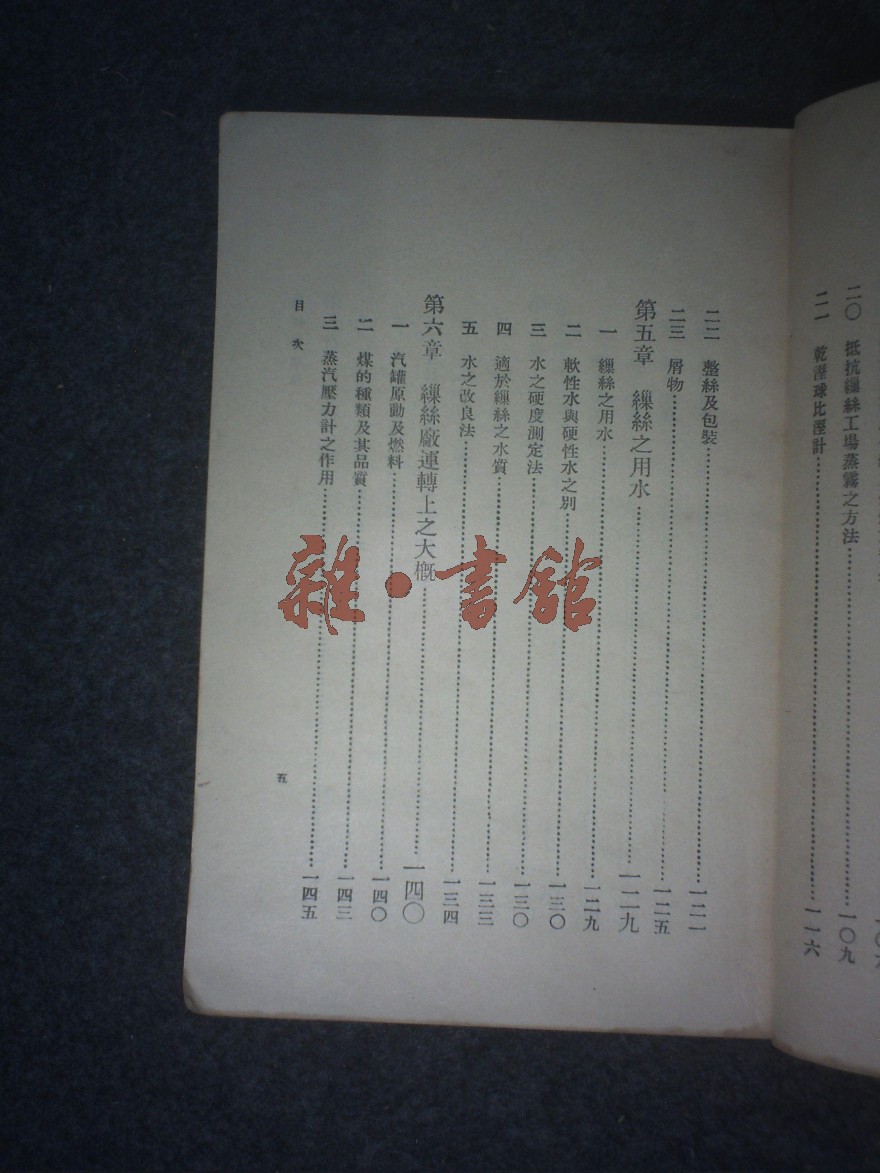 二〇　抵抗繅絲工場蒸霧之方法…一〇九
二一　乾溼球比溼計…一一六
二二　整絲及包裝…一二一
二三　屑物…一二五
第五章　繅絲之用水…一二九
一　繅絲之用水…一二九
二　軟性水與硬性水之別…一三〇
三　水之硬度測定法…一三〇
四　適於繅絲之水質…一三三
五　水之改良法…一三四
第六章　繅絲廠運轉上之大概…一四〇
一　汽罐原動及燃料…一四〇
二　煤的種類及其品質…一四三
三　蒸汽壓力計之作用…一四五
目次
五
雜·書館